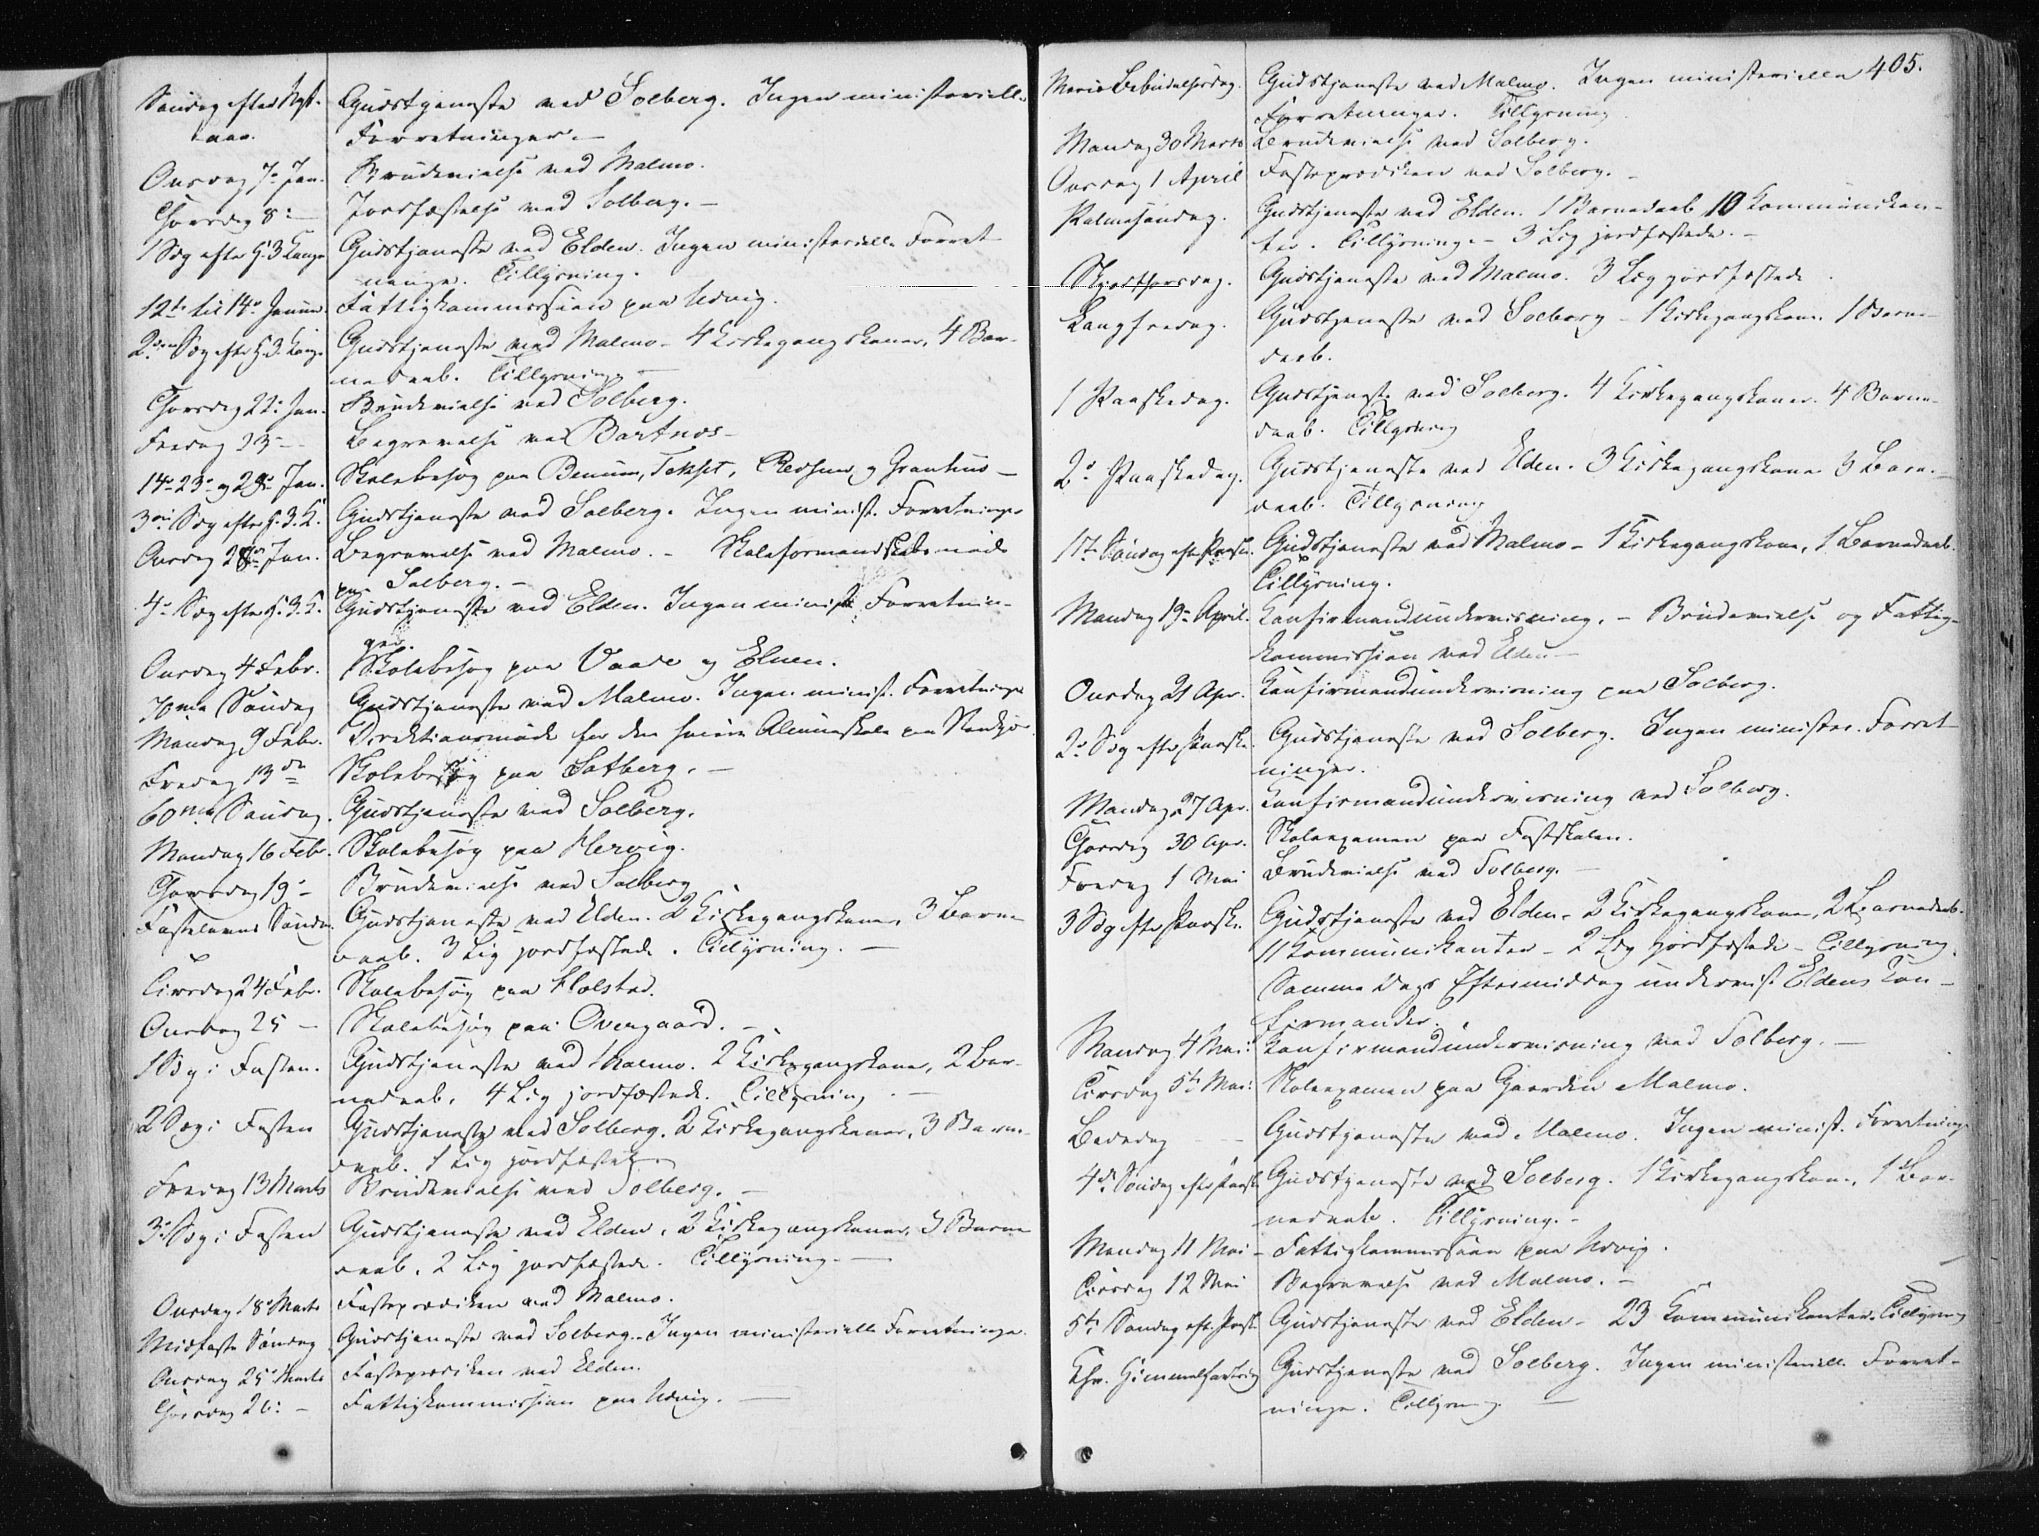 Søndag efter Nyt- Gudstjeneste ved Solberg. Ingen ministerielle
aar. Forretninger.—
Onsdag 7de Jan. Brudevielse ved Malmo.
Torsdag 8: — Jordfæstelse ved Solberg. —
1 Søg efter H. 3 Konge Gudstjeneste ved Elden. Ingen ministerielle Forret-
ninger. Tillysning.
12te til 14de Januar. Fattigkommission paa Udvig.
2den Søg efter H. 3. Konge Gudstjeneste ved Malmo — 4 Kirkegangskoner, 4 Bar-
nedaab. Tillysning. —
Torsdag 22: Jan. Brudevielse ved Solberg.
Fredag 23 — Begravelse ved Bartnes —
14de 23de og 29de Jan. Skolebesøg paa Benum, Tekset, Rødsem og Grantnes —
3die Søg efter H. 3. K. Gudstjeneste ved Solberg. Ingen minist. Forretninger
Onsdag 28de Jan. Begravelse ved Malmo. — Skoleformandskabsmøde
paa Solberg. —
4de Søg efter H. 3. K. Gudstjeneste ved Elden. Ingen minist. Forretnin-
ger.
Onsdag 4 Febr. Skolebesøg paa Vaade og Elnen.
70ma Søndag Gudstjeneste ved Malmo. Ingen minist. Forretninger
Mandag 9 Febr. Direktionsmøde for den høiere Almueskole paa Stenkjær.
Fredag 13de Skolebesøg paa Solberg. —
60ma Søndag. Gudstjeneste ved Solberg.
Mandag 16 Febr. Skolebesøg paa Hervig.
Torsdag 19 — Brudevielse ved Solberg
Fastelavns Søndag. Gudstjeneste ved Elden. 2 Kirkegangskoner, 3 Barne-
daab. 3 Lig jordfæstede. Tillysning. —
Tirsdag 24 Febr. Skolebesøg paa Holstad.
Onsdag 25 — Skolebesøg paa Overgaard. —
1 Søg i Fasten. Gudstjeneste ved Malmo. 2 Kirkegangskoner, 2 Bar-
nedaab. 4 Lig jordfæstede. Tillysning. —
2 Søg i Fasten Gudstjeneste ved Solberg. 2 Kirkegangskoner, 3 Barne-
daab. 1 Lig jordfæstet.
Fredag 13 Marts Brudevielse ved Solberg. —
3de Søg i Fasten Gudstjeneste ved Elden. 2 Kirkegangskoner, 3 Barne
daab. 2 Lig jordfæstede. Tillysning. —
Onsdag 18de Marts Fasteprædiken ved Malmo.
Midfaste Søndag Gudstjeneste ved Solberg. Ingen ministerielle Forretninger.
Onsdag 25de Marts Fasteprædiken ved Elden.
Torsdag 26: — Fattigkommission paa Udvig. —
405.
Mariæ Bebudelsesdag. Gudstjeneste ved Malmo. Ingen ministerielle
Forretninger. Tillysning
Mandag 30 Marts Brudevielse ved Solberg.
Onsdag 1 April Fasteprædiken ved Solberg. —
Palmesøndag. Gudstjeneste ved Elden. 1 Barnedaab 10 Kommunikan-
ter. Tillysning. — 3 Lig jordfæstede. —
Skjærtorsdag. Gudstjeneste ved Malmo. 3 Lig jordfæstede
Langfredag. Gudstjeneste ved Solberg — 1 Kirkegangskone. 1 Barne-
daab.
1 Paaskedag. Gudstjeneste ved Solberg. 4 Kirkegangskoner. 4 Barne-
daab. Tillysning
2de Paaskedag. Gudstjeneste ved Elden. 3 Kirkegangskoner 3 Barne-
daab. Tillysning
1ste Søndag efter Paaske. Gudstjeneste ved Malmo — 1 Kirkegangskone, 1 Barnedaab.
Tillysning.
Mandag 19de April. Konfirmandundervisning. — Brudevielse og Fattig-
kommission ved Elden —
Onsdag 21 Apr. Konfirmandundervisning paa Solberg.
2de Søg efter Paaske. Gudstjeneste ved Solberg. Ingen minister. Forret-
ninger.
Mandag 27 Apr. Konfirmandundervisning ved Solberg.
Torsdag 30 Apr. Skoleexamen paa Fastskolen.
Fredag 1 Mai Brudevielse ved Solberg. —
3 Søg efter Paaske. Gudstjeneste ved Elden — 2 Kirkegangskoner, 2 Barnedaab.
11 Kommunikanter — 2 Lig jordfæstede — Tillysning.
Samme Dags Eftermiddag undervist Eldens Kon-
firmander.
Mandag 4 Mai: Konfirmandundervisning ved Solberg. —
Tirsdag 5te Mai: Skoleexamen paa Gaarden Malmo.
Bededag — Gudstjeneste ved Malmo. Ingen minist. Forretninger
4de Søndag efter Paaske Gudstjeneste ved Solberg. 1 Kirkegangskone, 1 Bar-
nedaab. Tillysning. —
Mandag 11 Mai — Fattigkommission paa Udvig.
Tirsdag 12 Mai Begravelse ved Malmo. —
5te Søndag eft. Paaske Gudstjeneste ved Elden — 23 Kommunikanter. Tillysning
Chr. Himmelfartsdag Gudstjeneste ved Solberg. Ingen ministerielle Forret-
ninger. Tillysning —